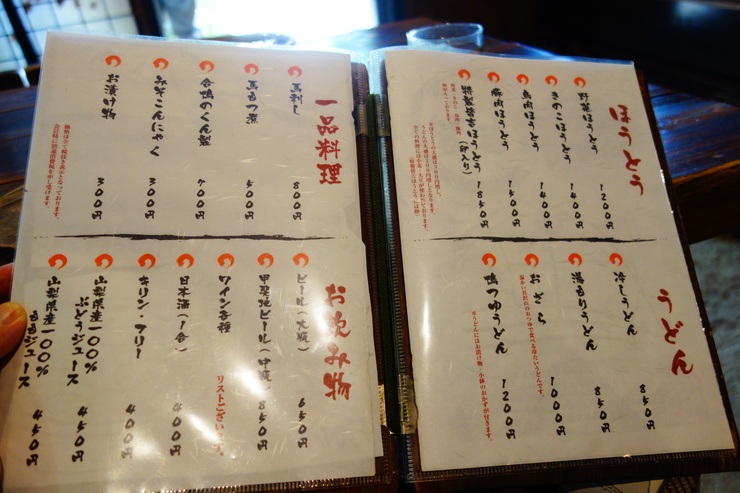 ほうとう
野菜ほうとう 1200円
きのこほうとう 1400円
鳥肉ほうとう 1400円
豚肉ほうとう 1500円
特製猪吉ほうとう(卵入り) 1850円
うどん
冷しうどん 850円
湯もりうどん 850円
おざら 1000円
温かい具沢山のおつゆで食べる冷たいうどんです。
鴨つゆうどん 1200円
※うどんにはお漬け物・小鉢のおかずが付きます。
一品料理
馬刺し 800円
馬もつ煮 500円
合鴨のくん製 700円
みそこんにゃく 300円
お漬け物 300円
お飲み物
ビール(大瓶) 650円
甲斐地ビール(中瓶) 850円
ワイン各種 リストございます。
日本酒(1合) 400円
キリン・フリー 400円
山梨県産一〇〇%ぶどうジュース 450円
山梨県産一〇〇%ももジュース 450円